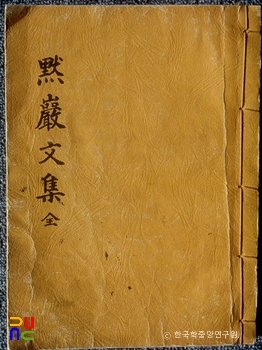 黙巖文集 全
© 한국학중앙연구원